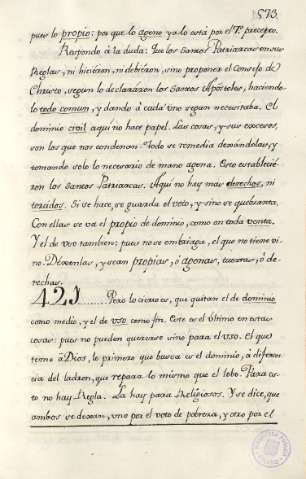 573
pues lo propio: por que lo ageno ya lo está por el 7º precepto.
Respondo á la duda: Que los Santos Patriarcas en sus
Reglas, ni hicieron, ni debieron, sino proponer el consejo de
Christo, segun lo declararon los Santos Apóstoles, haciendo
lo todo comun, y dando á cada uno segun necesitaba. El
dominio civil aqui no hace papel. Las cosas, y sus excesos,
son los que nos condenan. Todo se remedia dexandolas, y
tomando solo lo necesario de mano agena. Esto establecié-
ron los Santos Patriarcas. Aqui no hay mas derechos, ni
torcidos. Si se hace, se guarda el voto, y sino se quebranta.
Con ellas se va el propio de dominio, como en toda venta.
Y el de vso tambien: pues no se embriaga, el que no tiene vi-
no. Dexenlas, y sean propias, ó agenas, tuertas, ó de-
rechas.
421 Pero lo cierto es, que quitan el de dominio
como medio, y el de vso como fin. Este es el último en estas
cosas: pues no pueden quererse sino para el vso. El que
teme á Dios, lo primero que busca es el dominio, á diferen-
cia del ladron, que repara lo mismo que el lobo. Para es-
to no hay Regla. La hay para Religiosos. Y se dice, que
ambos se dexan, vno por el voto de pobreza, y otro por el